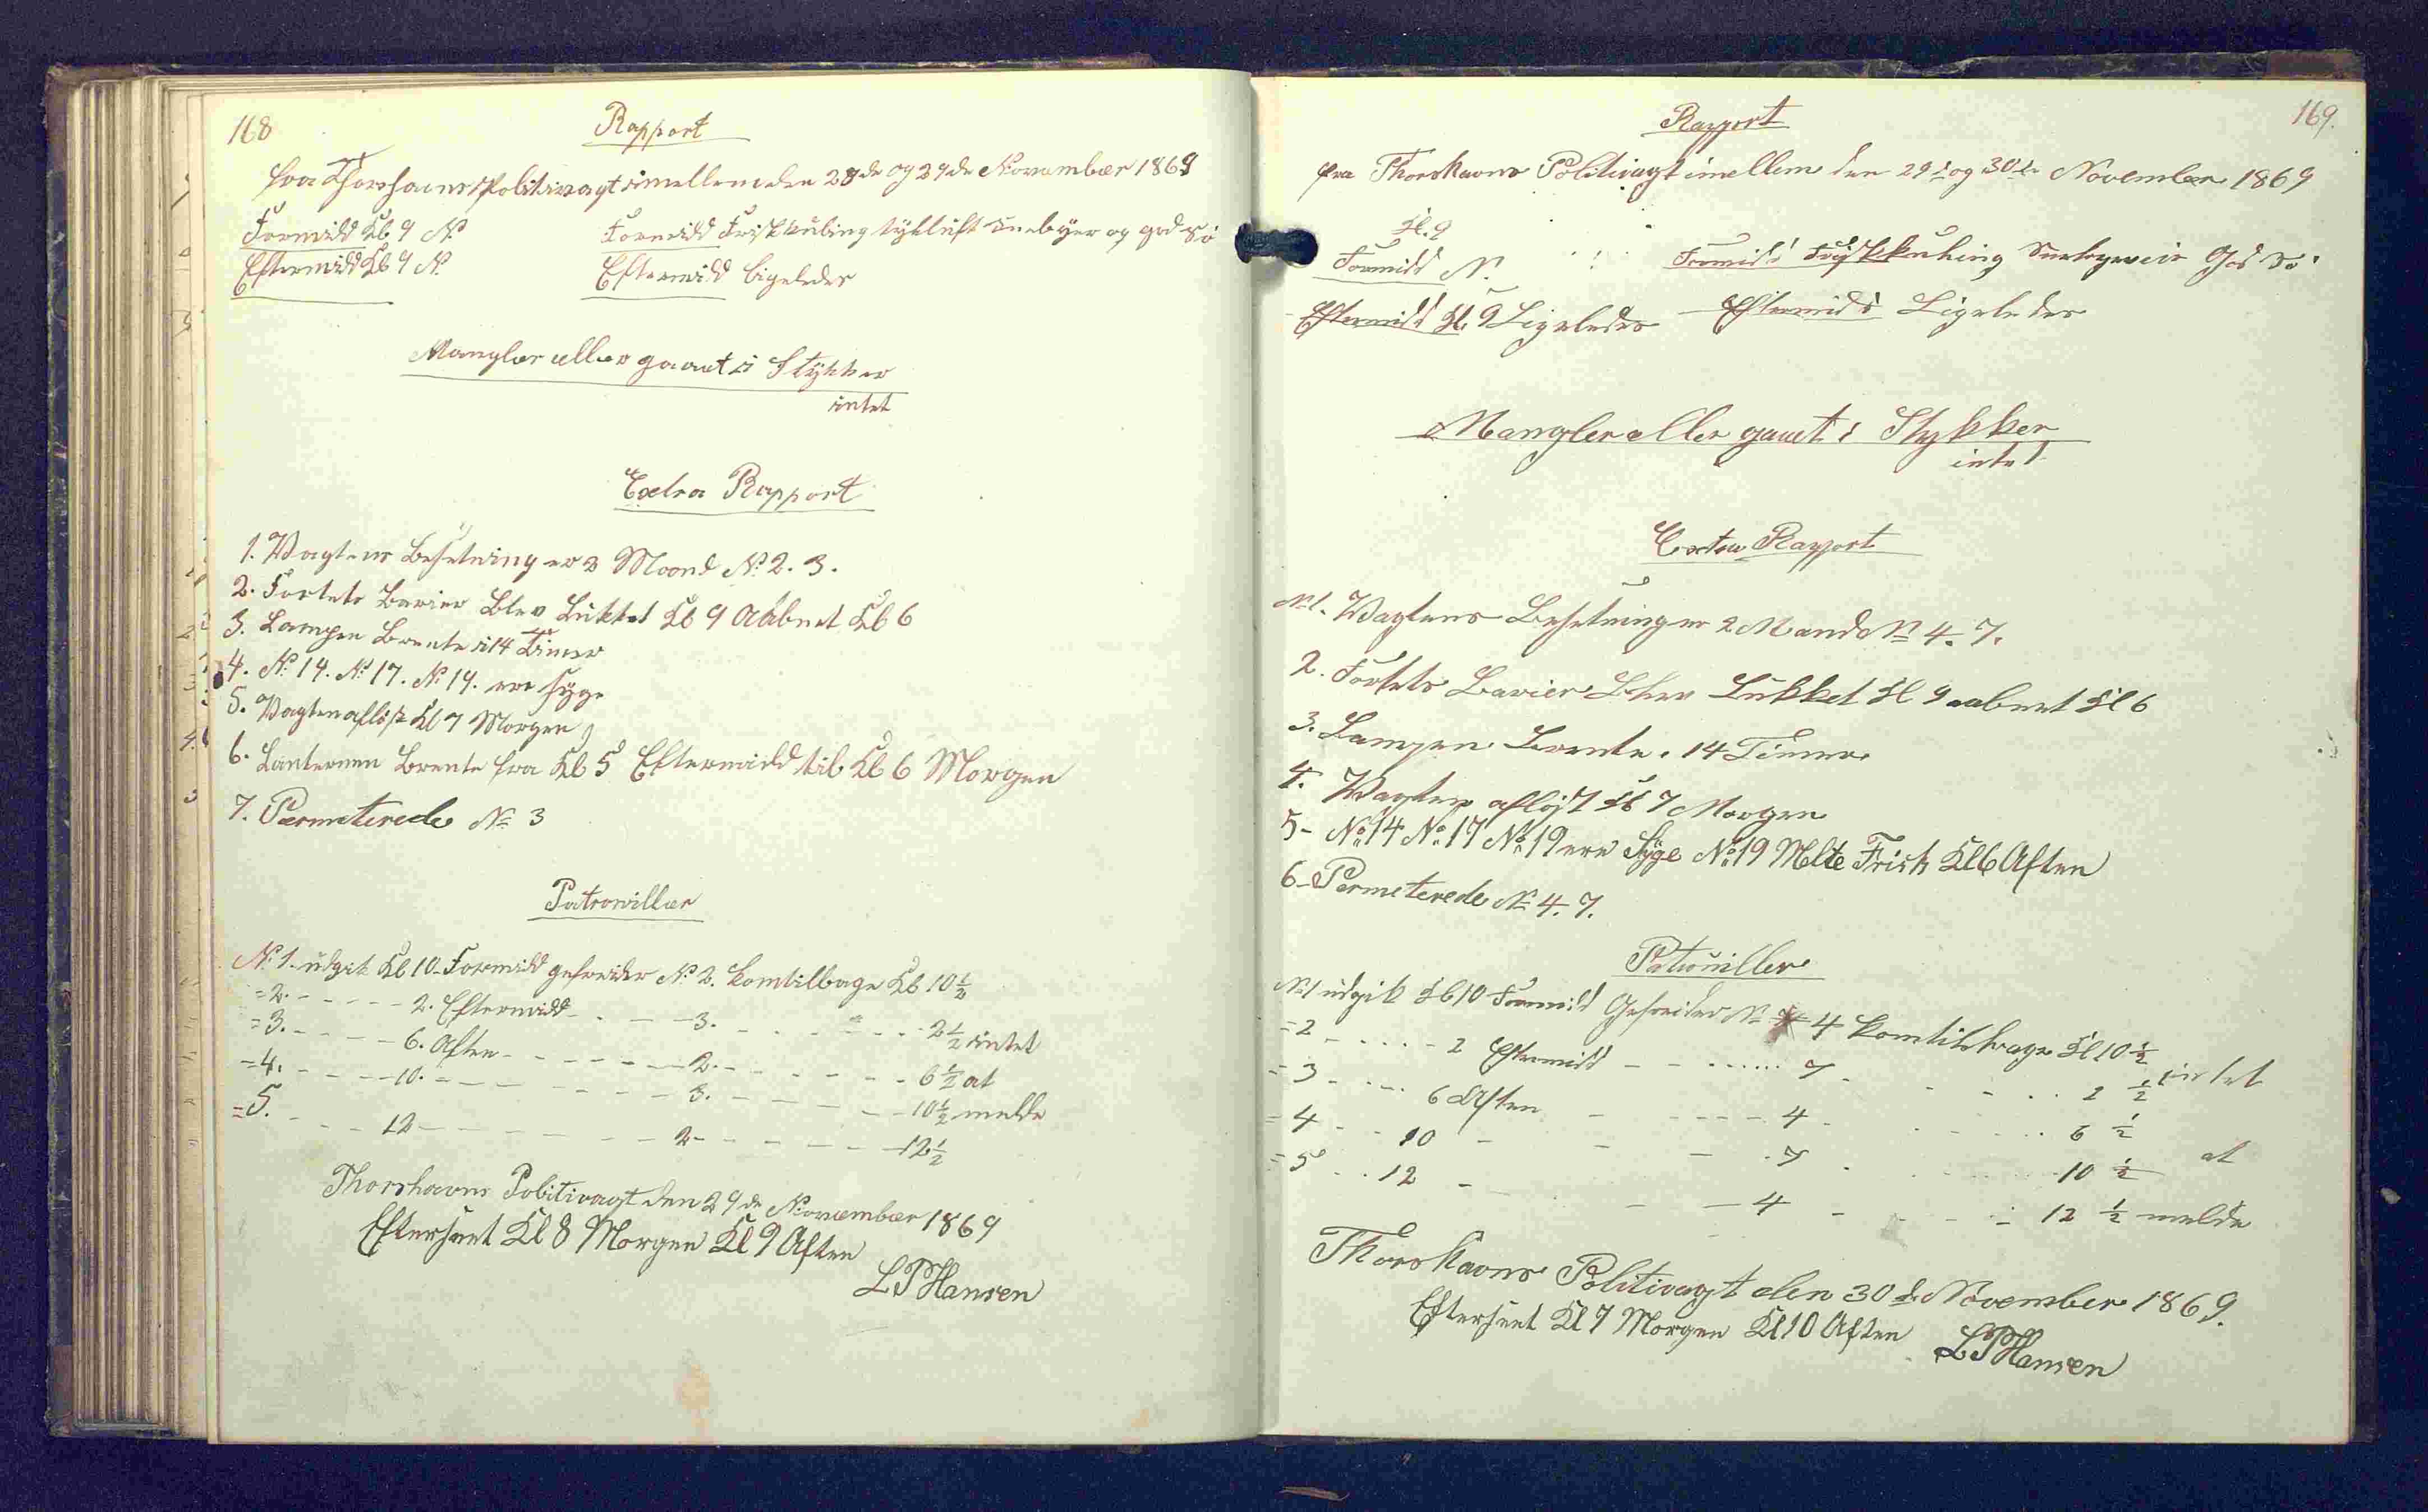 168
Rapport
fra Thorshavns Politivagt imellem den 28de og 29de November 1869
Formidd Kl 9 N. Formidd Frisk kuling tykluft snebyer og god Sö
Eftermidd Kl 9 N. Eftermidd ligeledes
Mangler eller gaaet i Stykker
intet
Extra Rapport
1. Vagtens Besetning er 2 Mand No 2. 3.
2. Fortets Barier Blev Lukket Kl 9 Aabnet Kl 6
3. Lampen Brente i 14 Timer
4. No 14. No 17. No 19. ere syge
5. Vagten aflöst Kl 7 Morgen
6. Lanternen Brente fra Kl 5 Eftermidd til Kl 6 Morgen
7. Permeterede No 3
Patrouiller
No 1. udgik Kl 10 Formidd gefreider No 2. kom tilbage Kl 10 ½
= 2. - - - - - 2. Eftermidd - - - 3. - - - - 2 ½ intet
= 3. - - - - 6. Aften - - - - - 2. - - - - - 6 ½ at
= 4. - - - 10. - - - - - - 3. - - - - - 10 ½ melde
= 5. - - - 12 - - - - - - 2 - - - - - 12 ½
Thorshavns Politivagt den 29de November 1869
Efterseet Kl 8 Morgen Kl 9 Aften
L P Hansen
169.
Rapport
fra Thorshavns Politivagt imellem den 29de og 30te November 1869
Kl. 9
Formidd N. Formidd Friskkuling Snebyeveir God Sö
Eftermidd Kl. 9 Ligeledes Eftermidd Ligeledes
Mangler eller gaaet i Stykker
intet
Extra Rapport
No 1. Vagtens Besetning er 2 Mand No 4. 7.
2. Fortets Barier Blev Lukket Kl 9 aabnet Kl 6
3. Lampen Brente i 14 Timer
4. Vagten aflöst Kl 7 Morgen
5 - No 14 No 17 No 19 ere Syge No 19 Melte Frisk Kl 6 Aften
6 - Permeterede No 4. 7.
Patrouiller
No 1 udgik Kl 10 Formidd Gefreider No 4 kom tilbage Kl 10 ½
= 2 - - - - - 2 Eftermidd - - - - 7 - - - - 2 ½ intet
= 3 - - - 6 Aften - - - - 4 - - - - 6 ½
= 4 - - 10 - - - 7 - - - 10 ½ at
= 5 - - 12 - - - 4 - - - 12 ½ melde
Thorshavns Politivagt den 30te November 1869.
Efterseet Kl 7 Morgen Kl 10 Aften
L P Hansen